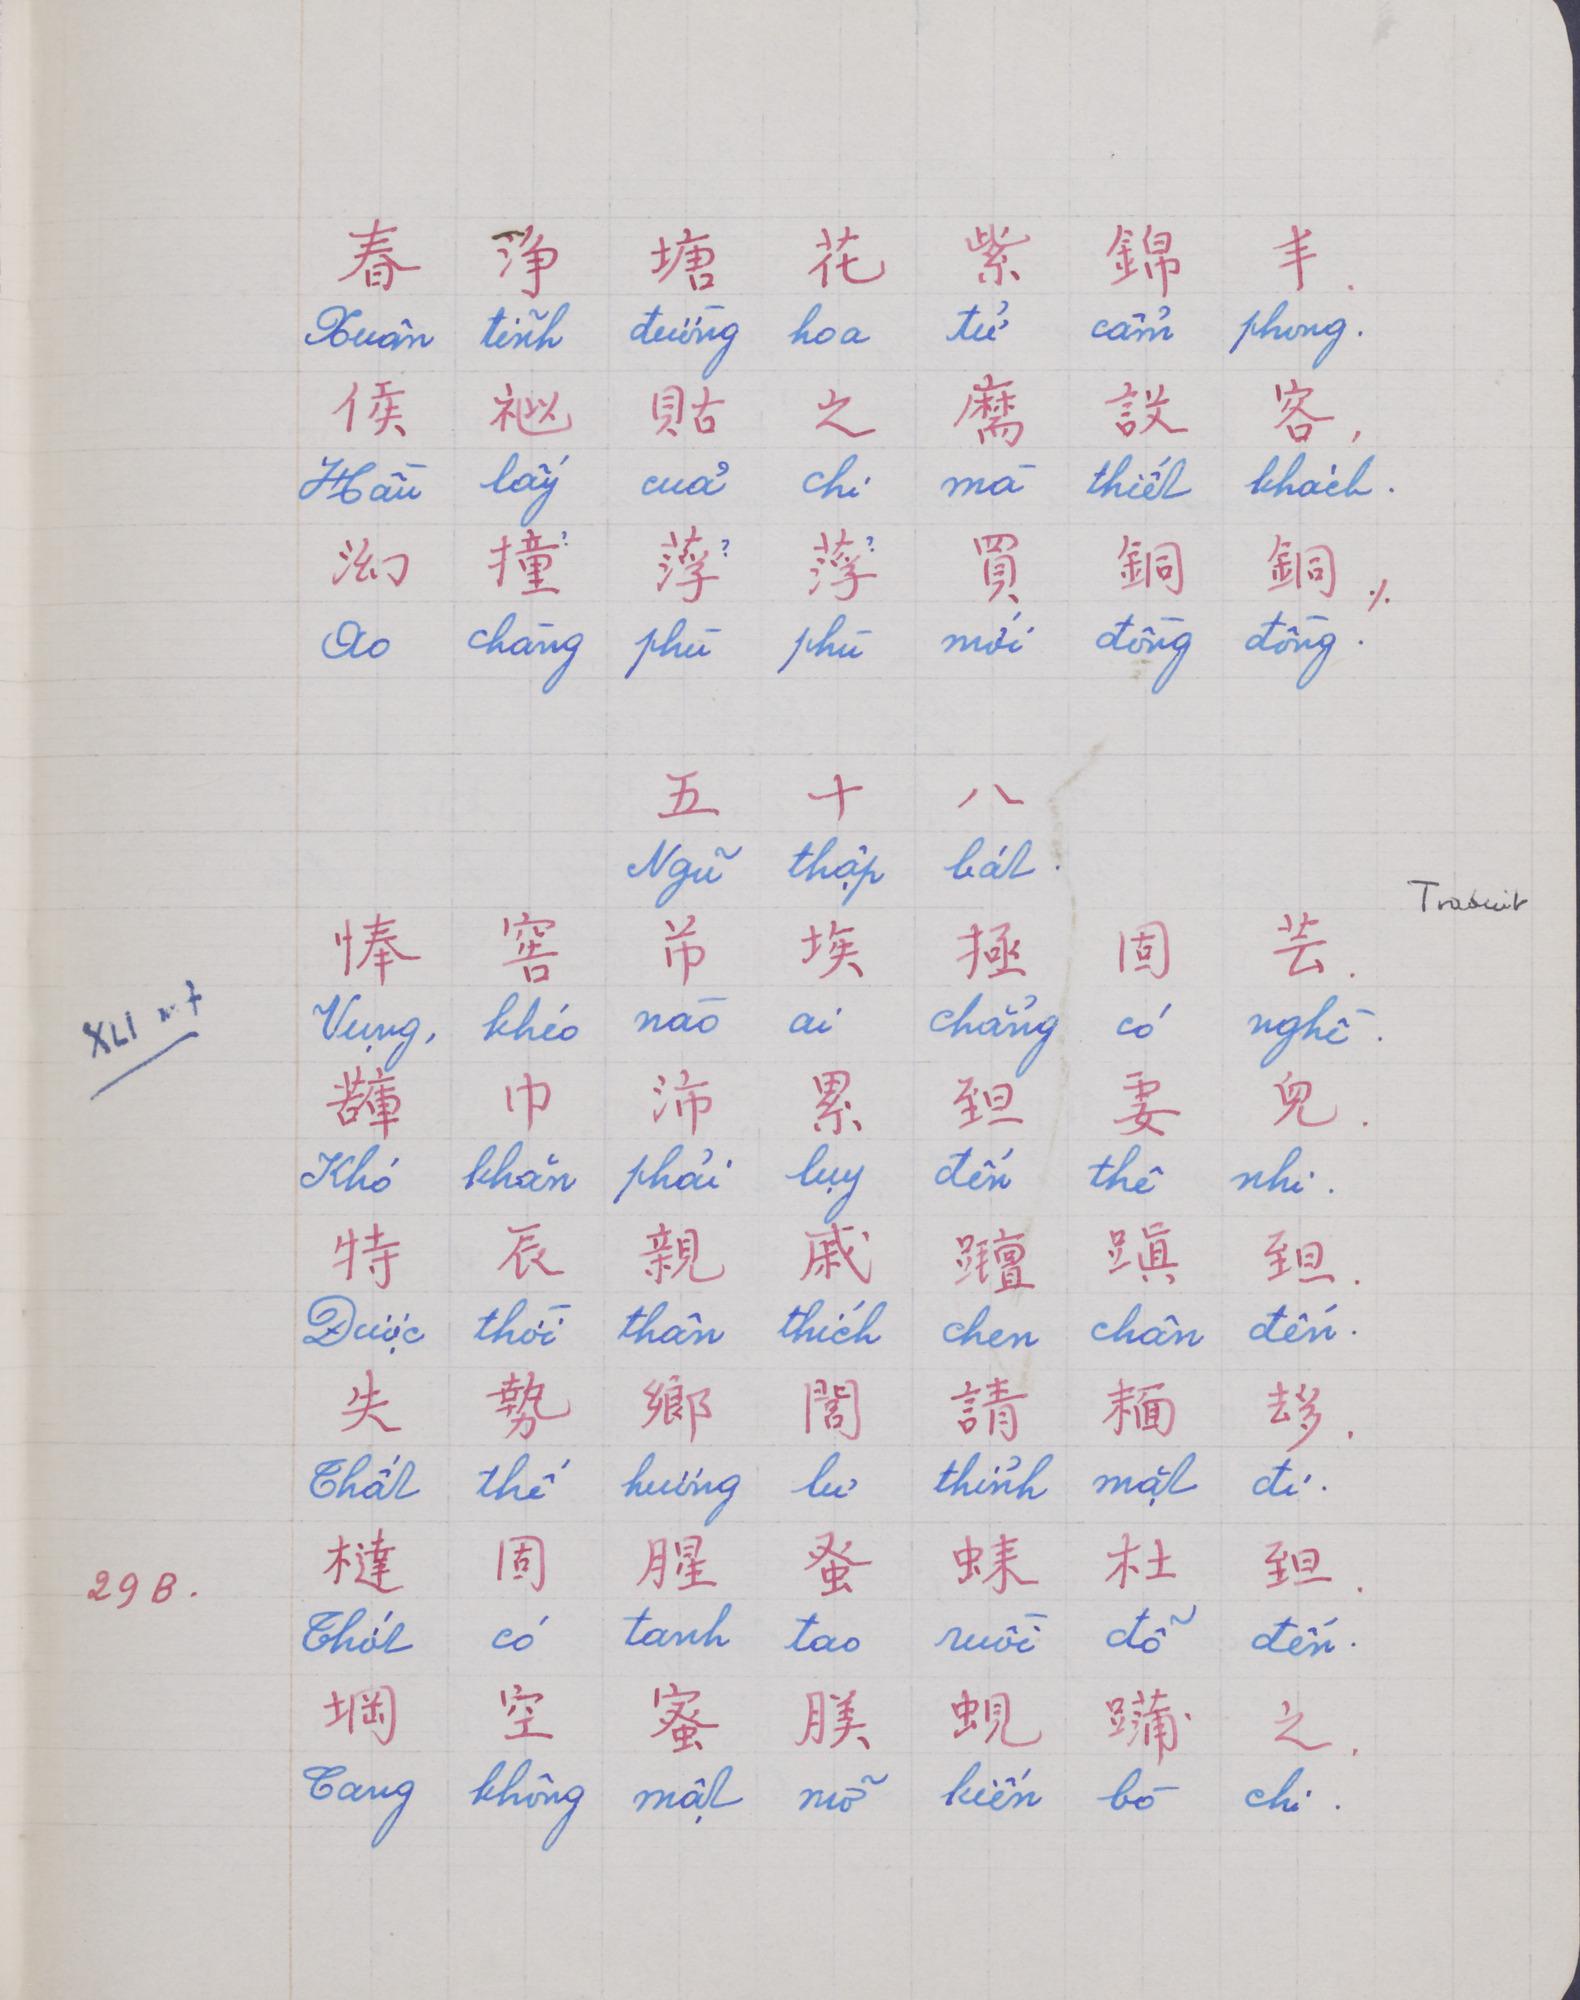 春 淨 塘 花 紫 錦 丰.
Xuân tình đường hoa tử cẩm phong.
侯 祕 貼 之 麿 設 客,
Hầu lấy cuả chi mà thiết khách.
泑 撞? 莩? 莩? 買 銅 銅 ./.
Ao chàng phù phù mới đồng đồng.
五 十 八
Ngũ thập bát.
Traduit
惷 窖 芇 埃 拯 固 芸.
XLI n. 7
Vụng, khéo nào ai chẳng có nghề.
巾 沛 累 𦤾 妻 兒.
Khó khăn phải lụy đến thê nhi.
特 辰 親 戚 蹎 𦤾.
Được thời thân thích chen chân đến.
失 勢 鄉 閭 請 𩈘 𠫾.
Thất thế hương lư thỉnh mặt đi.
撻 固 腥 蚤 蝳 杜 𦤾.
29 B.
Thớt có tanh tao ruồi đỗ đến.
堈 空 蜜 膜 蜆 之.
Cang không mật mỡ kiến bò chi.